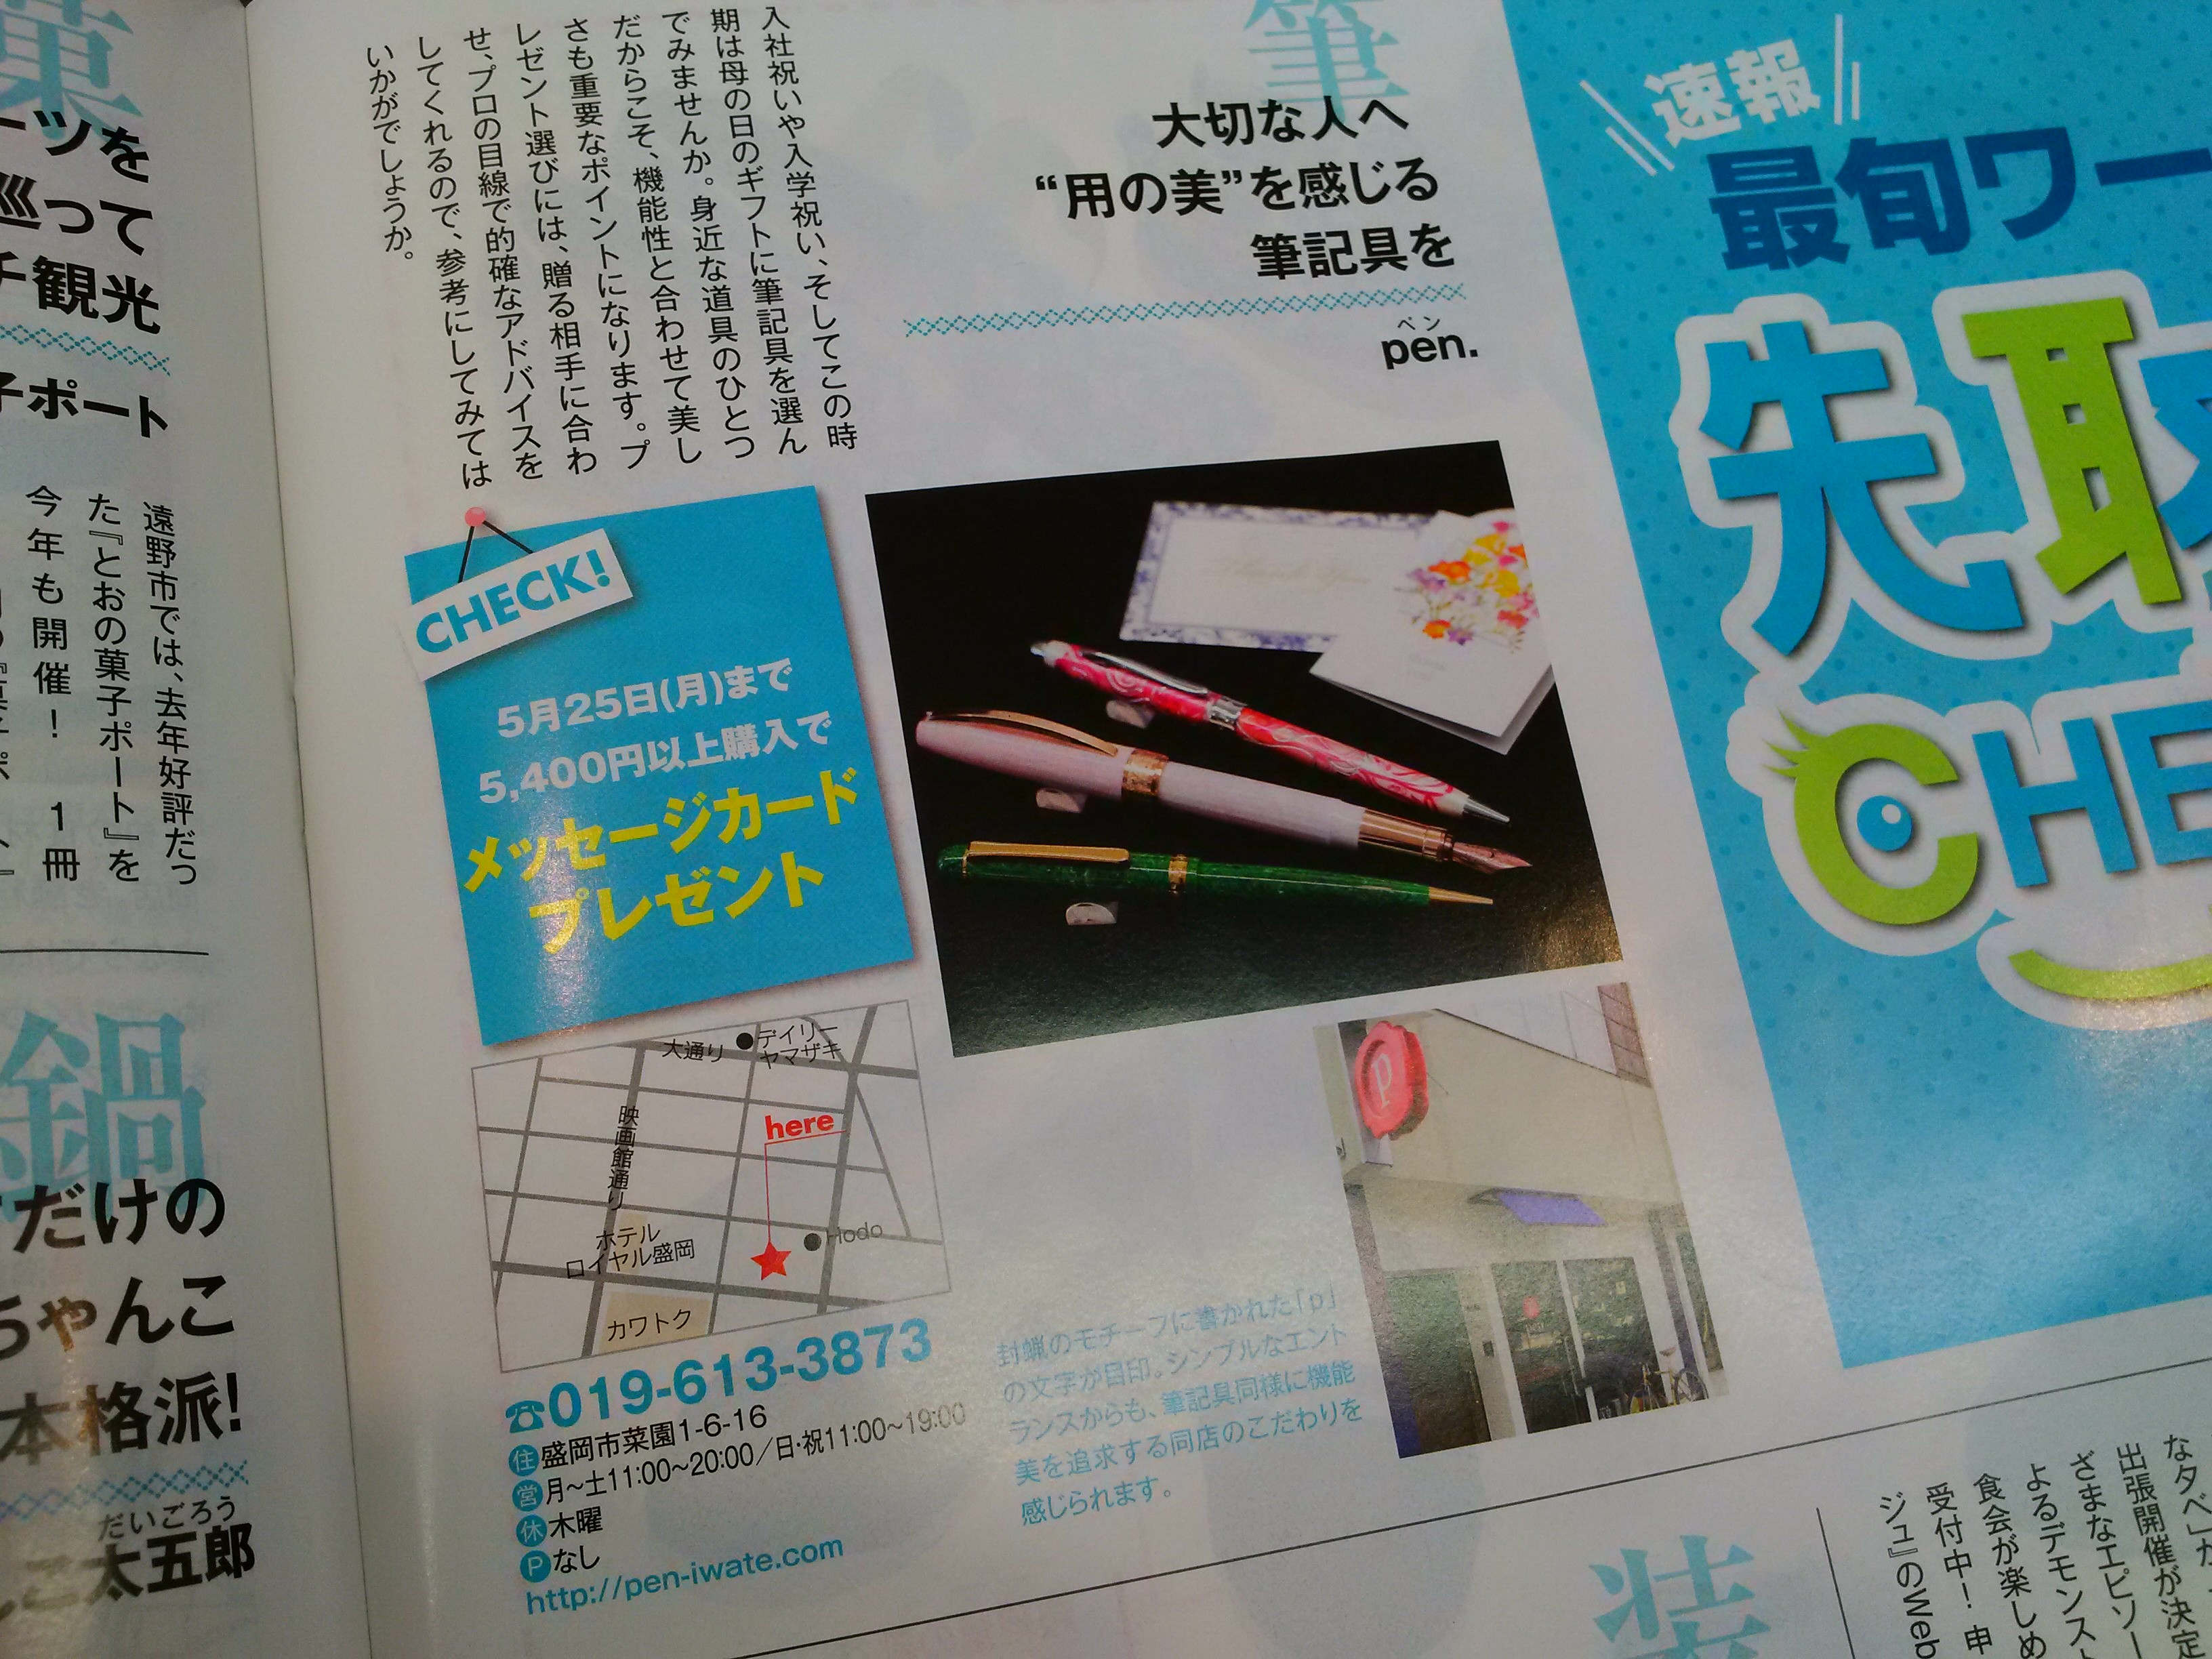 速報
最旬ワー
先取
CHE
筆
大切な人へ
“用の美”を感じる
筆記具を
ペン
pen.
入社祝いや入学祝い、そしてこの時
期は母の日のギフトに筆記具を選ん
でみませんか。身近な道具のひとつ
だからこそ、機能性と合わせて美し
さも重要なポイントになります。プ
レゼント選びには、贈る相手に合わ
せ、プロの目線で的確なアドバイスを
してくれるので、参考にしてみては
いかがでしょうか。
CHECK!
5月25日(月)まで
5,400円以上購入で
メッセージカード
プレゼント
Thank You
P
大通り
デイリー
ヤマザキ
映画館通り
here
ホテル
ロイヤル盛岡
Hodo
カワトク
☎019-613-3873
住盛岡市菜園1-6-16
営月〜土11:00〜20:00／日・祝11:00〜19:00
休木曜
Pなし
http://pen-iwate.com
封蝋のモチーフに書かれた「p」
の文字が目印。シンプルなエント
ランスからも、筆記具同様に機能
美を追求する同店のこだわりを
感じられます。
装
なタベ」が
出張開催が決定
さまなエピソー
よるデモンスト
食会が楽しめ
受付中！ 申
ジュ』のWeb
菓
ーツを
巡って
チ観光
子ポート
遠野市では、去年好評だっ
た『とおの菓子ポート』を
今年も開催！ 1冊
鍋
だけの
ちゃんこ
本格派!
だいごろう
こ太五郎